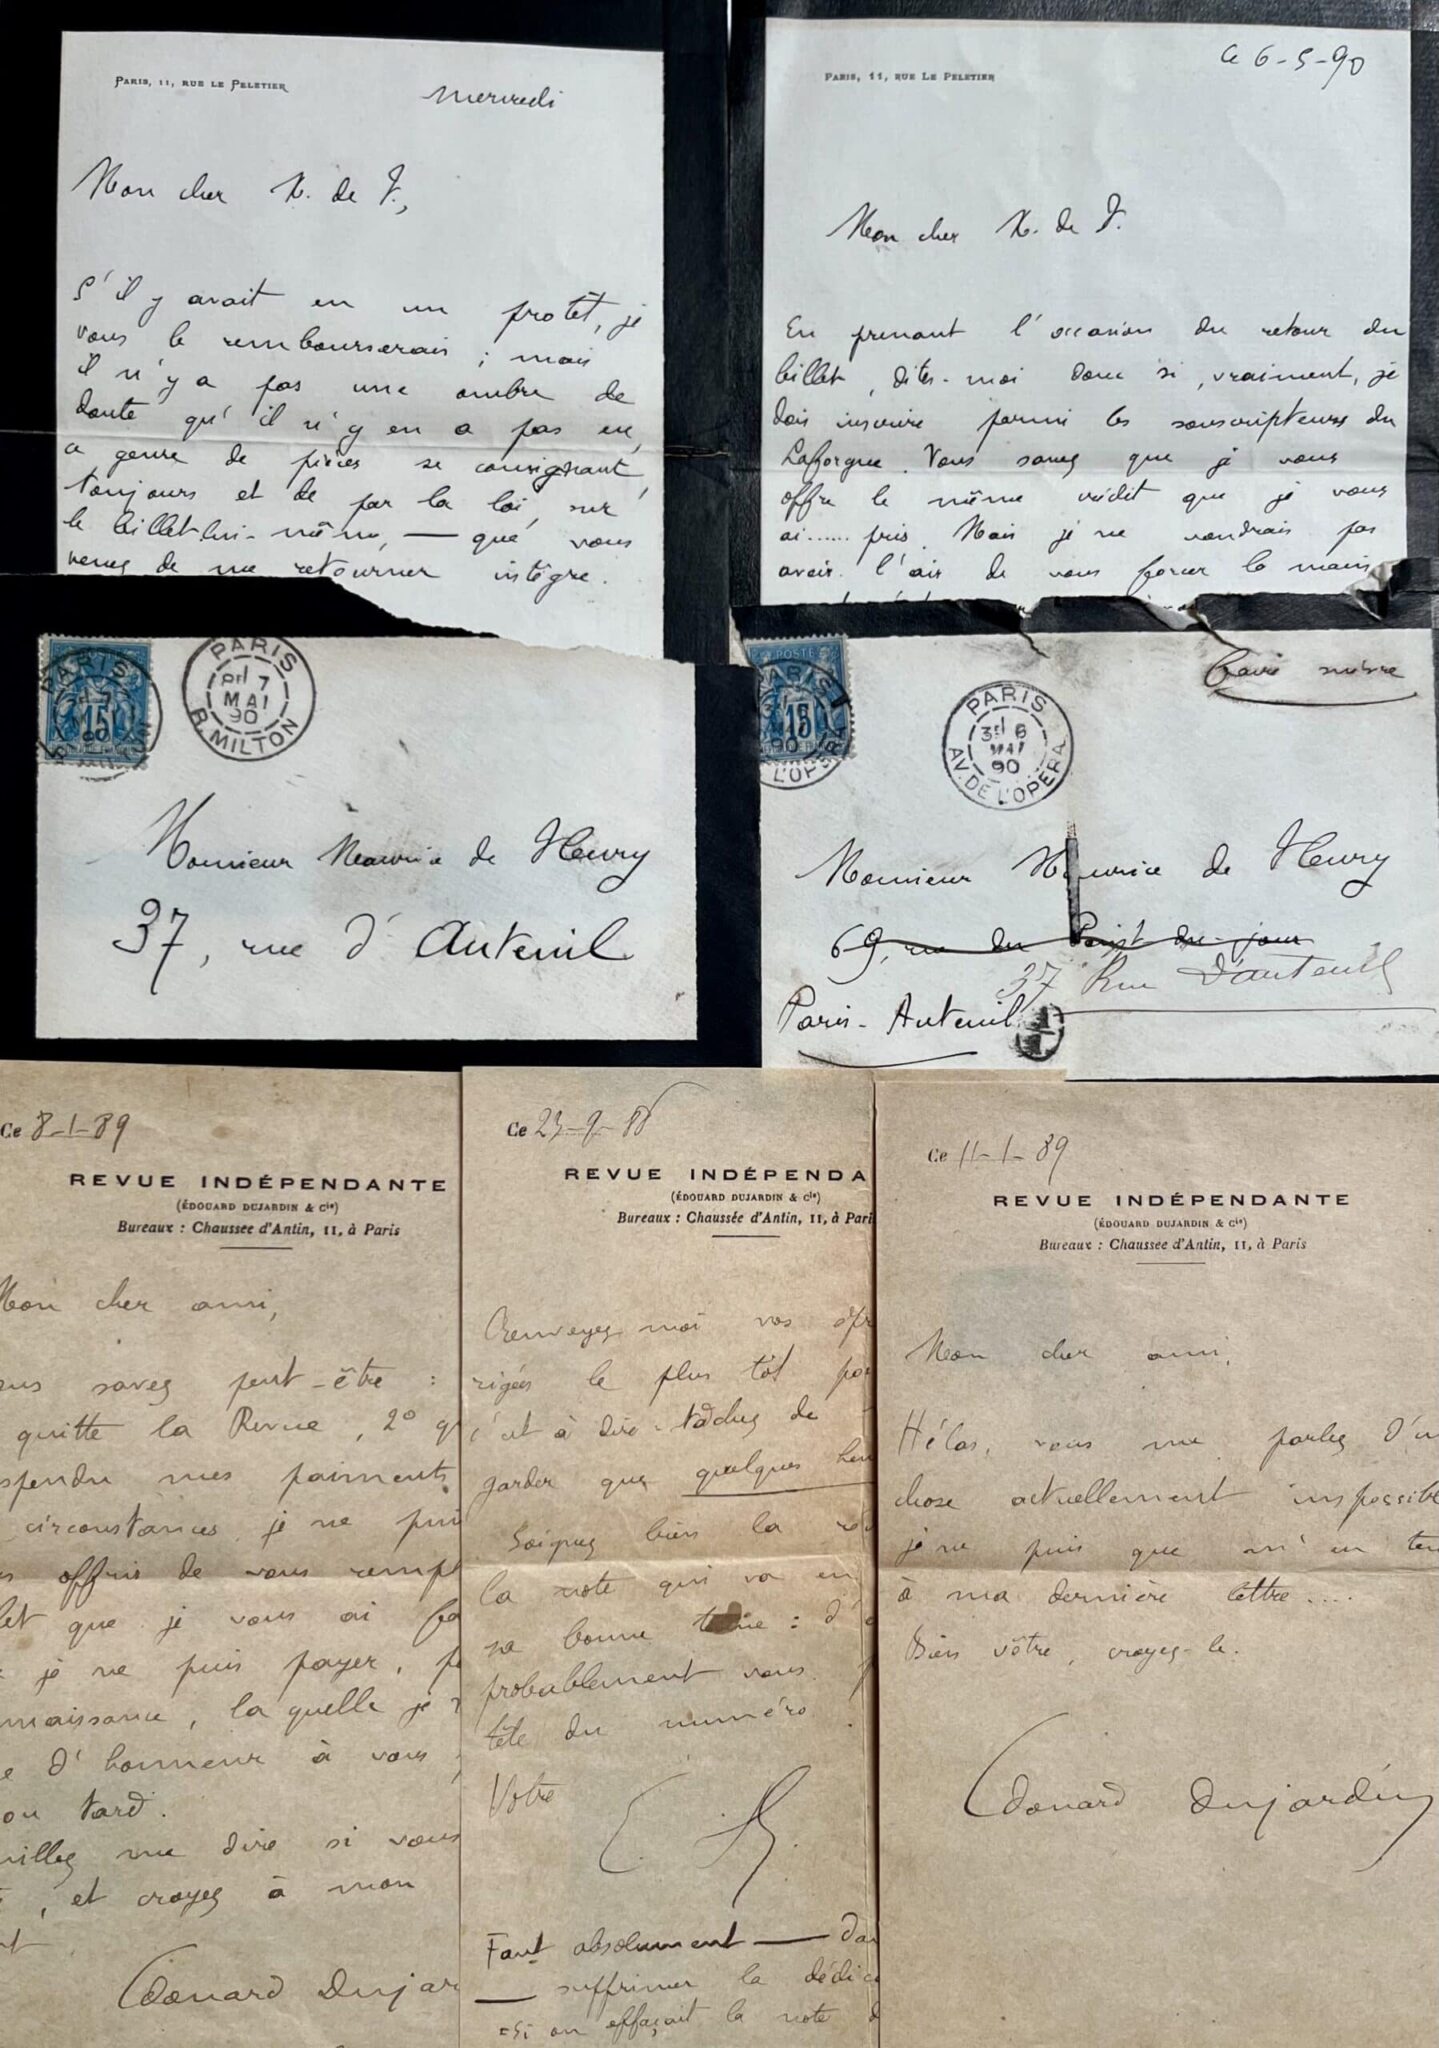 PARIS, 11, RUE LE PELETIER
mercredi
Mon cher M. de F.,
S'il y avait eu un protêt, je
vous le rembourserais ; mais
il n'y a pas une ombre de
doute qu'il n'y en a pas eu,
ce genre de pièces se consignant,
toujours et de par la loi, sur
le billet lui-même, — que vous
venez de me retourner intègre.
PARIS, 11, RUE LE PELETIER
Ce 6-5-90
Mon cher M. de F.
En prenant l'occasion du retour du
billet, dites-moi donc si, vraiment, je
dois inscrire parmi les souscripteurs du
Laforgue. Vous savez que je vous
offre le même crédit que je vous
ai...... pris. Mais je ne voudrais pas
avoir l'air de vous forcer la main
PARIS
7
MAI
90
R. MILTON
15
Monsieur Maurice de Fleury
37, rue d'Auteuil
faire suivre
PARIS
6
MAI
90
AV. DE L'OPERA
15
Monsieur Maurice de Fleury
69, rue du Point-du-jour
37 Rue d'Auteuil
Paris-Auteuil
Ce 8-1-89
REVUE INDÉPENDANTE
(ÉDOUARD DUJARDIN & Cie)
Bureaux : Chaussée d'Antin, 11, à Paris
Mon cher ami,
savez peut-être :
quitte la Revue, 2°
mes paiments
circonstances, je ne
offris de vous
que je vous ai
je ne puis payer,
, la quelle je
d'honneur à vous
ou tard.
me dire si vous
, et croyez à mon
Édouard Dujar
Ce 23-9-88
REVUE INDÉPENDA
(ÉDOUARD DUJARDIN & Cie)
Bureaux : Chaussée d'Antin, 11, à Pari
Renvoyez moi vos épr
rigées le plus tôt po
c'est à dire - tâchez de
garder que quelques heu
Soignez bien la
la note qui va en
sa bonne : d'a
probablement vous
tête du numéro.
Votre
E. D.
Faut absolument — dan
— supprimer la dédica
=Si on effaçait la note d
Ce 11-1-89
REVUE INDÉPENDANTE
(ÉDOUARD DUJARDIN & Cie)
Bureaux : Chaussée d'Antin, 11, à Paris
Mon cher ami,
Hélas, vous me parlez d'u
chose actuellement impossibl
je ne puis que m'en ten
à ma dernière lettre....
Bien vôtre, croyez-le.
Édouard Dujardin